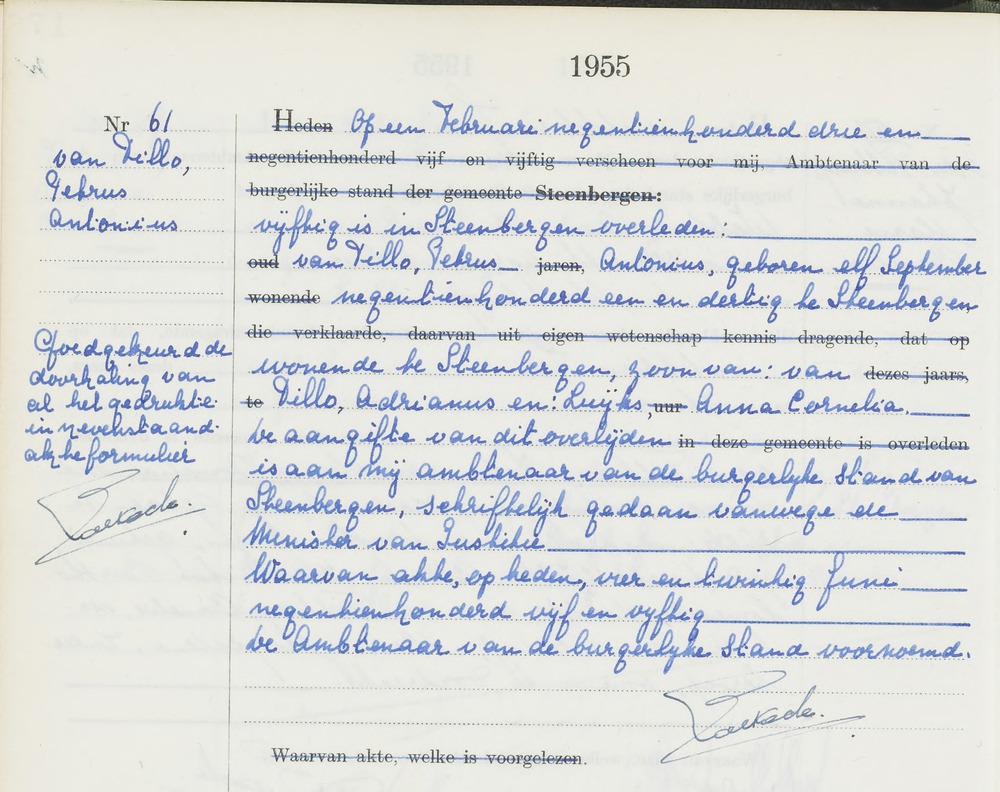 1955
Nr 61
van Tillo,
Petrus
Antonius
Goedgekeurd de
doorhaling van
al het gedrukte
in nevenstaand
akteformulier
Heden Op een Februari negentienhonderd drie en
negentienhonderd vijf en vijftig verscheen voor mij, Ambtenaar van de
burgerlijke stand der gemeente Steenbergen:
vijftig is in Steenbergen overleden:
oud van Tillo, Petrus jaren, Antonius, geboren elf September
wonende negentienhonderd een en dertig te Steenbergen
die verklaarde, daarvan uit eigen wetenschap kennis dragende, dat op
wonende te Steenbergen, zoon van: van dezes jaars,
te Tillo, Adrianus en: Luijks, uur Anna Cornelia.
De aangifte van dit overlijden in deze gemeente is overleden
is aan mij ambtenaar van de burgerlyke stand van
Steenbergen, schriftelijk gedaan vanwege de
Minister van Justitie
Waarvan akte, op heden, vier en twintig Juni
negentienhonderd vijf en vyftig
De Ambtenaar van de burgerlyke Stand voornoemd.
Waarvan akte, welke is voorgelezen.